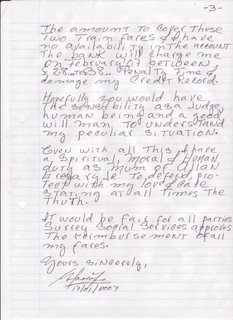 -3-
The amount to cover these
Two Train Fares if I have
no availability in the account
The bank will charge me
on February 07 between
28.. to 38.. Penalty Fine &
damage my Credit Record.
Hopefully you would have
The sensitivity as a Judge,
human being and a good
will man, to understand
my peculiar situation.
Even with all this I have
a Spiritual, Moral & Human
duty as mum of
to defend, pro-
tect with my love
stating at all Times The
Truth.
It would be fair for all parties
Surrey Social Services approves
The reimbursement of all
my fares.
Yours Sincerely,